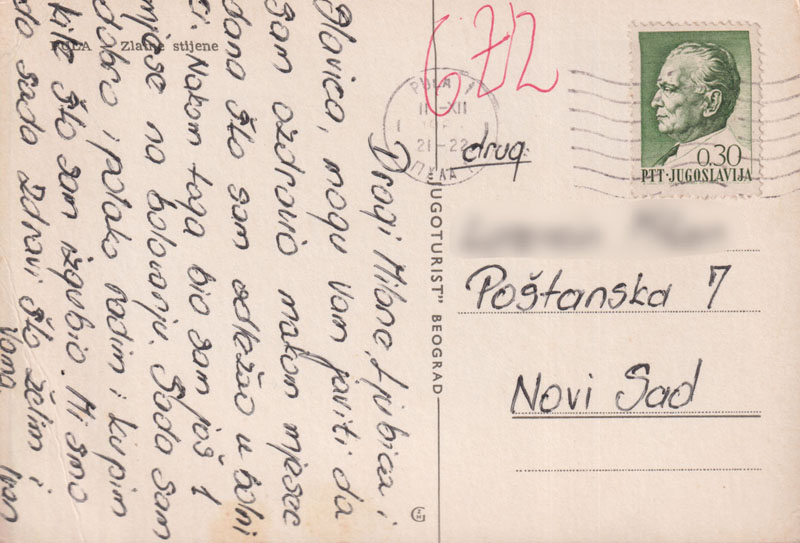 PULA Zlatne stijene
Dragi Milane, Ljubica i
Slavica, mogu Vam javiti da
sam ozdravio nakon mjesec
dana što sam odležao u bolni
ci. Nakon toga bio sam još 1
mjesec na bolovanju. Sada sam
dobro i polako radim i kupim
kile što sam izgubio. Mi smo
do sada zdravi što želim i
Vama. Ivan
JUGOTURIST" BEOGRAD
672
PULA 1
II-XII
21-22
drug
0.30
PTT·JUGOSLAVIJA
Poštanska 7
Novi Sad